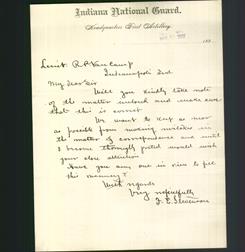 Indiana National Guard.
Headquarters First Artillery.
Lieut R. P. Van Camp
Indianapolis Ind
My dear Sir
Will you kindly take note
of the matter inclosed and make sure
that this is correct
We want to keep as near
as possible from making mistakes in
the matter of correspondence and until
I become thoroughly posted would wish
your close attention
Have you any one in view to fill
this vacancy?
With regards
Very respectfully